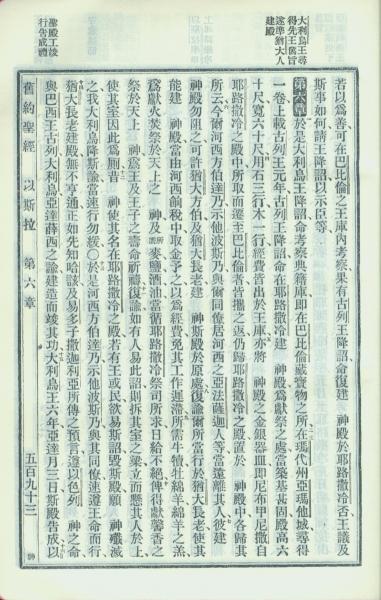 大利烏王尋
得先王舊旨
遂準猶大人
建殿
聖殿工竣
行告成禮
若以爲善可在巴比倫之王庫內考察果有古列王降詔命復建　神殿於耶路撒冷否王議及
斯事如何請王降詔以示臣等
第六章於是大利烏王降詔命考察典籍庫卽在巴比倫藏寶物之所在瑪代州亞瑪他城尋得
一卷上載古列王元年古列王降詔命在耶路撒冷建　神殿爲獻祭之處當築基甚固殿高六
十尺寬六十尺用石三行木一行經費皆出於王庫亦將　神殿之金銀器皿卽尼布甲尼撒自
耶路撒冷之殿中所取而遷至巴比倫者皆攜之返仍歸耶路撒冷之殿置於　神殿中各歸其
所云今爾河西方伯達乃示他波斯乃與爾同僚居河西之亞法薩迦人等當遠離其人彼建
神殿勿阻之可許猶大方伯及猶大長老建　神斯殿於原處復諭爾所當行於猶大長老使其
能建　神殿當由河西餉稅中取金予之以爲經費免其工作遲滯所需牛犢牡綿羊綿羊之羔
爲獻火焚祭於天上之　神及麥鹽酒油當循耶路撒冷祭司所求日給不絕俾得獻馨香之
祭於天上之　神爲王及王子之壽命祈禱復諭如有人易此詔則拆其室之梁立而懸其人於上
使其室因此爲厠昔　神使其名在耶路撒冷之殿若有王或民欲易斯詔毀斯殿願　神殲滅
之我大利烏降斯諭當速行勿緩〇於是河西方伯達乃示他波斯乃與其同僚速遵王命而行
猶大長老建殿無不亨通正如先知哈該及易多子撒迦利亞所傳之預言遵以色列　神之命
與巴西王古列大利烏亞達薛西之諭建造而竣其功大利烏王六年亞達月三日斯殿告成以
舊約聖經　以斯拉　第六章　五百九十三